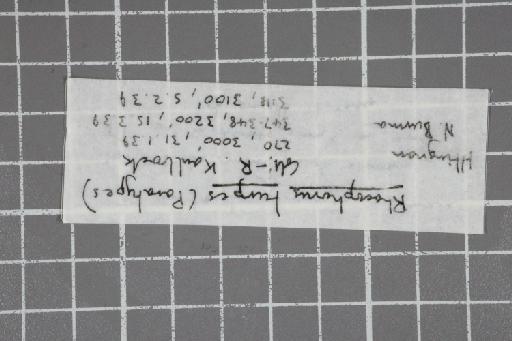 Rhacophorus turpes (Paratypes)
Coll:- R. Kaulback
Htingnan 270, 3000', 31.1.39
N. Burma 347-348, 3200', 15.3.39
3100', 5.2.39